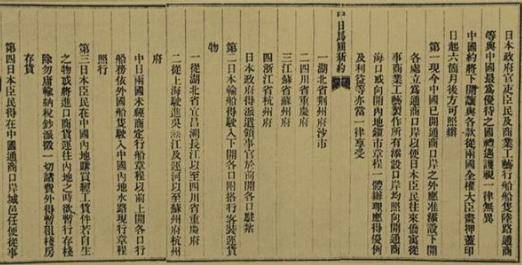 日本政府官吏臣民及商業工藝行船船隻陸路通商
等與中國最爲優待之國禮遇護視一律無異
中國約將下開讓與各款從兩國全權大臣畫押蓋印
日起六個月後方可照辦
第一現今中國已開通商口岸之外應准添設下開
各處立爲通商口岸以便日本臣民往來僑寓從
事商業工藝製作所有添設口岸均照向開通商
海口或向開內地鎭市章程一體辦理應得優例
及利益等亦當一律享受
中日馬關新約
一湖北省荊州府沙市
二四川省重慶府
三江蘇省蘇州府
四浙江省杭州府
日本政府得派遣領事官於前開各口駐紮
第二日本輪船得駛入下開各口附搭行客裝運貨
物
一從湖北省宜昌溯長江以至四川省重慶府
二從上海駛進吳淞江及運河以至蘇州府杭州
府
中日兩國未經商定行船章程以前上開各口行
船務依外國船隻駛入中國內地水路現行章程
照行
第三日本臣民在中國內地購買經工貨件若自生
之物或將進口商貨運往內地之時欲暫行存棧
除勿庸輸納稅鈔派徵一切諸費外得暫租棧房
存貨
第四日本臣民得在中國通商口岸城邑任便從事